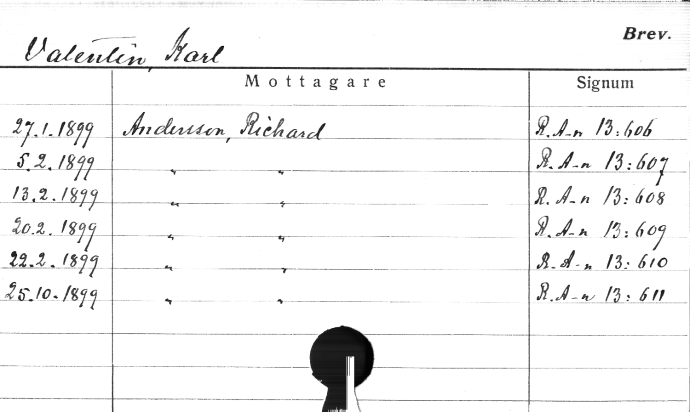 Brev.
Valentin, Karl
Mottagare Signum
27.1.1899 Andersson, Richard R. A-n 13:606
5.2.1899 " " R. A-n 13:607
13.2.1899 " " R. A-n 13:608
20.2.1899 " " R. A-n 13:609
22.2.1899 " " R. A-n 13:610
25.10.1899 " " R. A-n 13:611